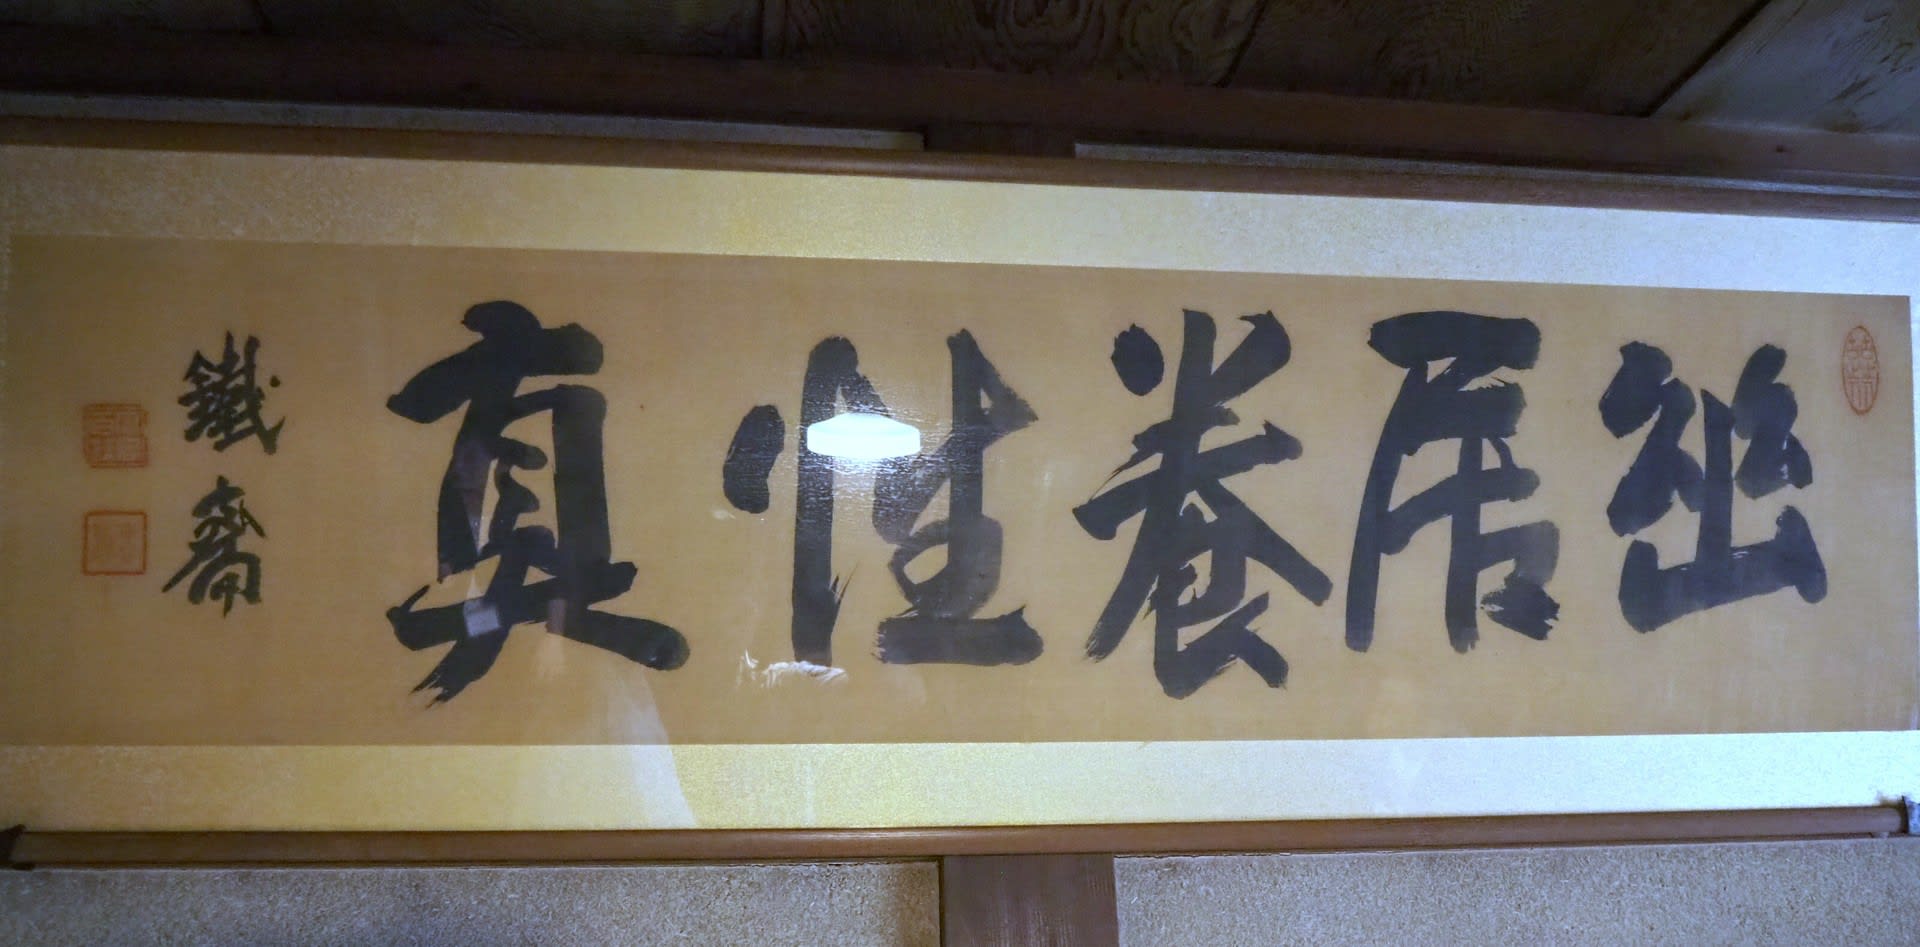 幽居養性真
鐵齋